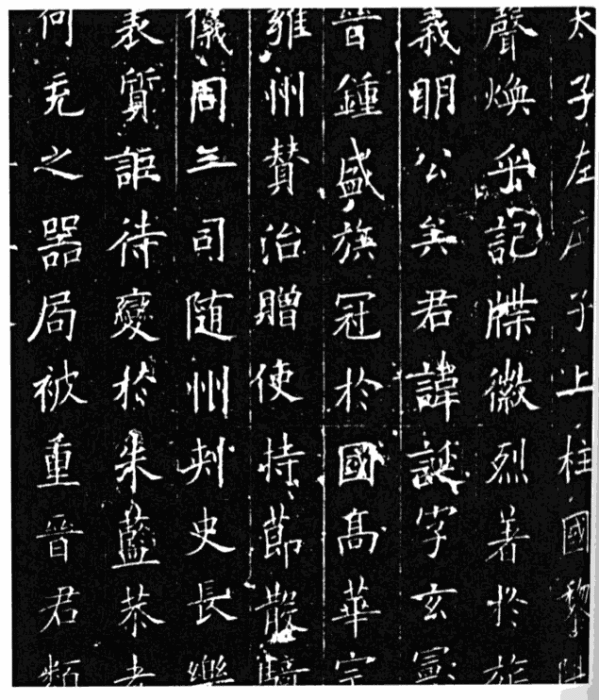 太子左庶子上柱國黎陽
聲煥乎記牒徽烈著於旂
義明公矣君諱誕字玄憲
晉鍾盛族冠於國高華宗
雍州贊治贈使持節散騎
儀同三司隨州刺史長樂
表質詎待變於朱藍恭孝
何充之器局被重晉君類